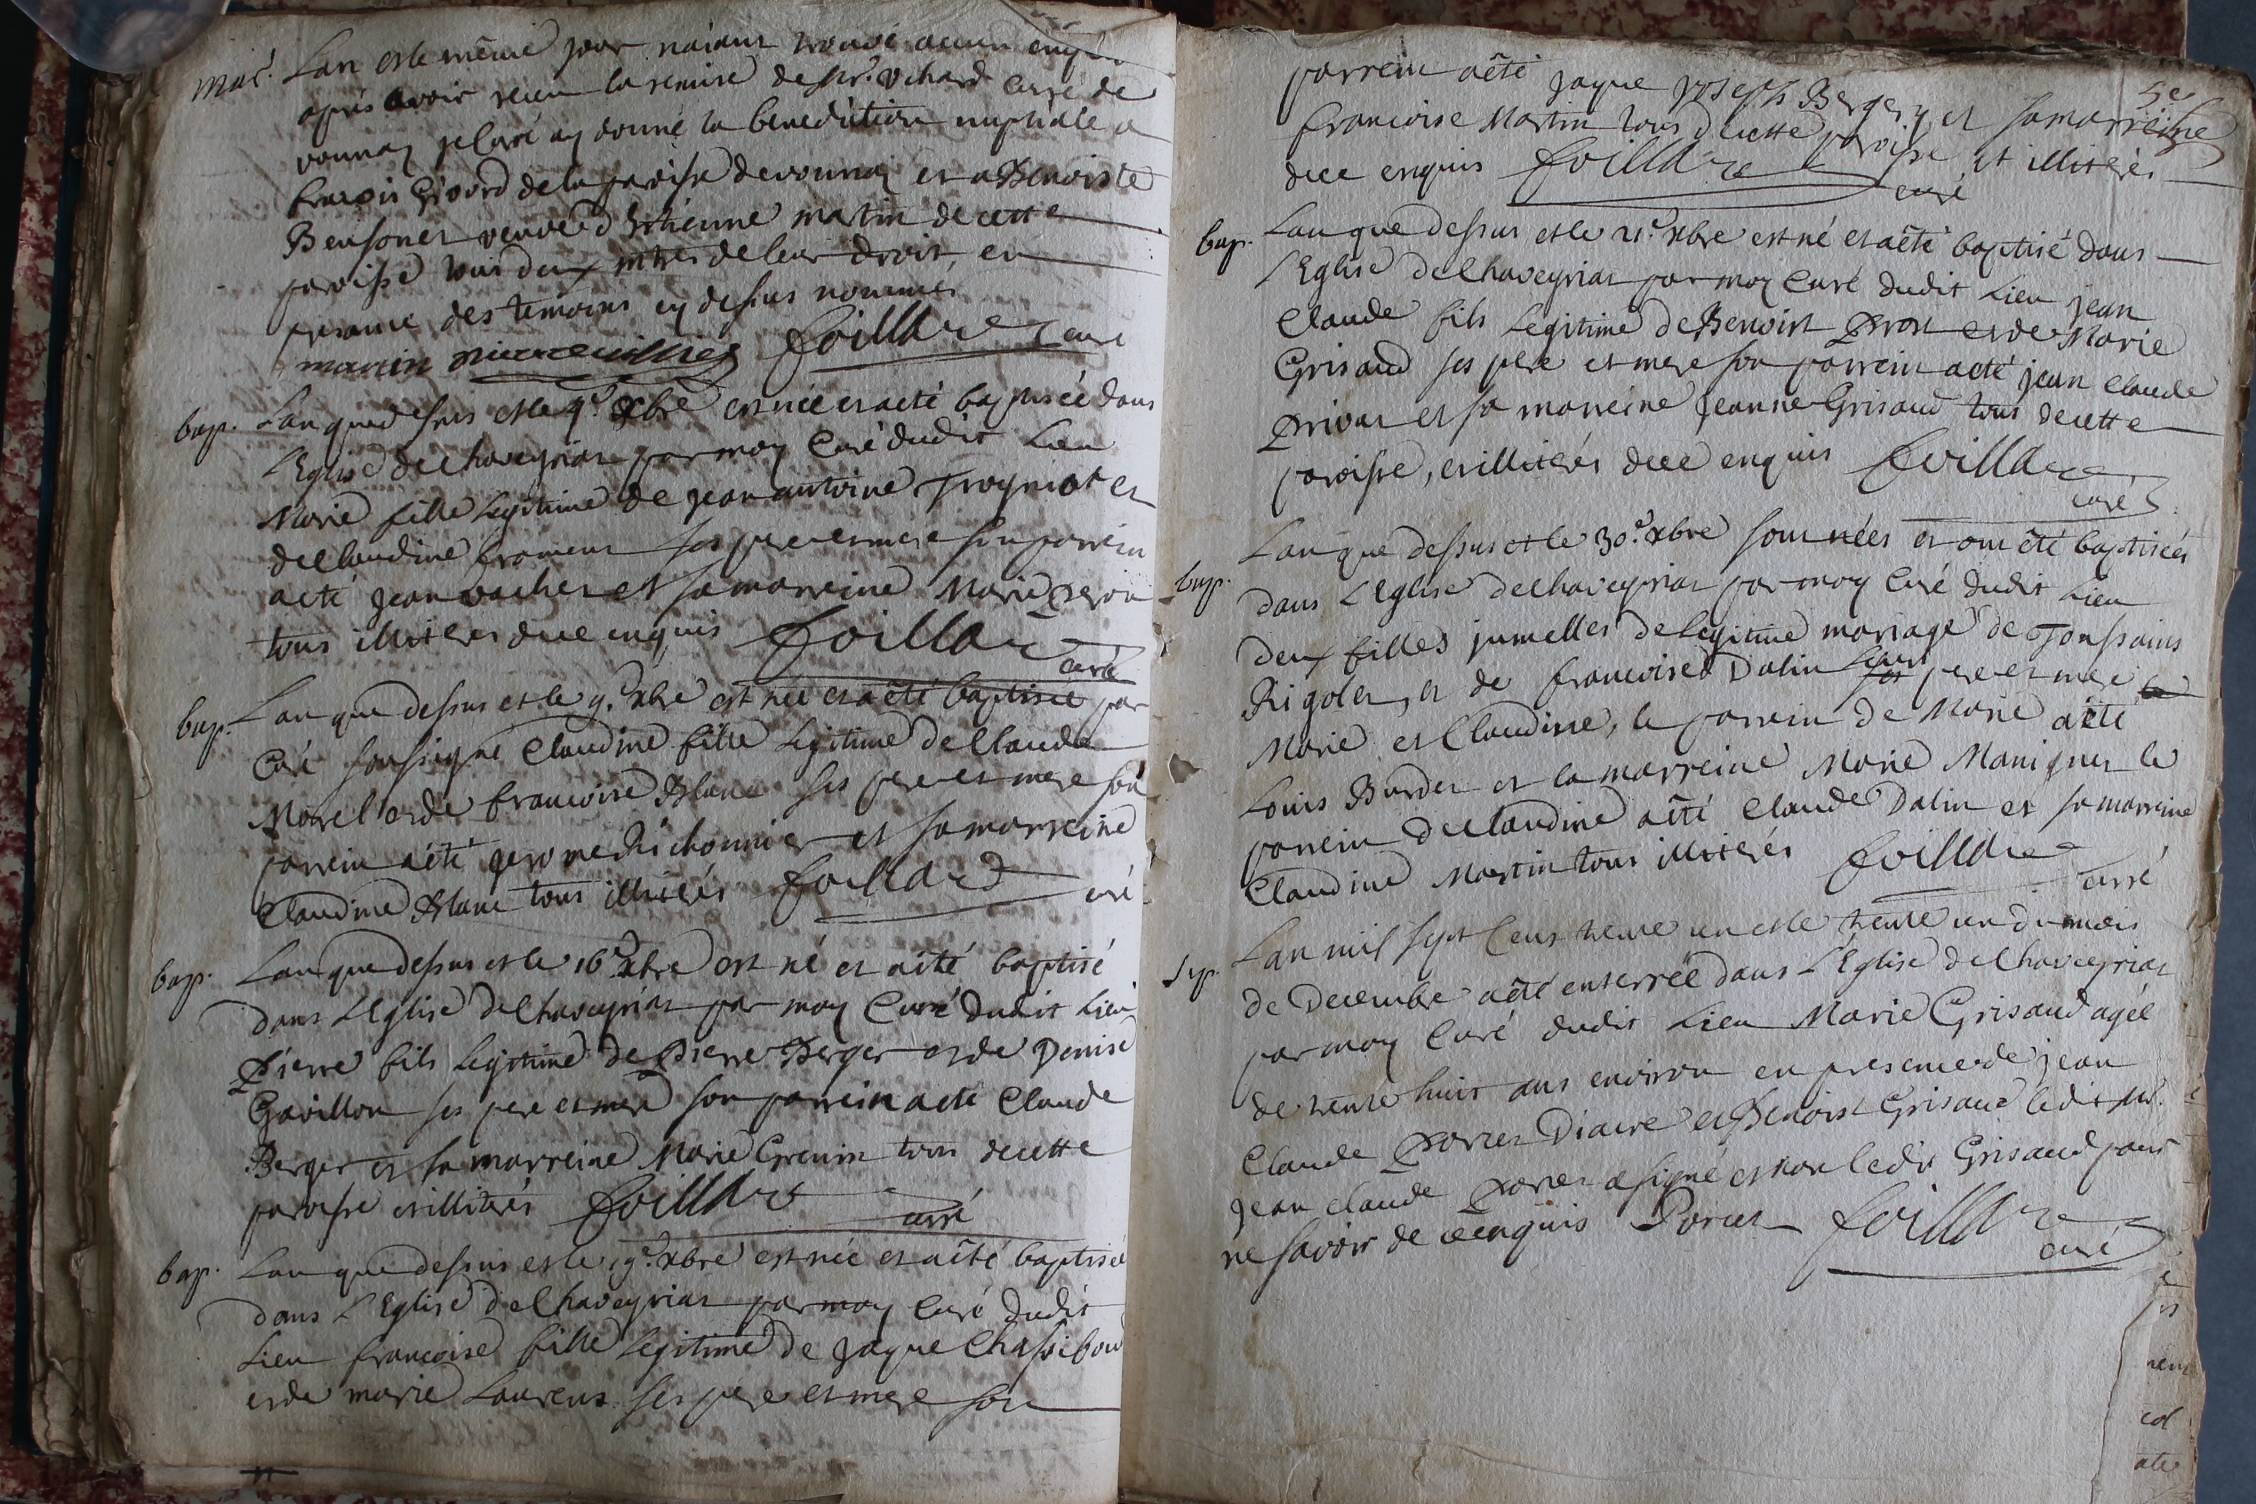 mar.
Lan et le même jour naiant trouvé aucun
après avoir receu la remise de sr. Vchard curé de
vonnaz je curé ay donné la benediction nuptiale a
francois Givord de la paroisse de vonnaz et a Benoiste
Bensonet veuve d'Ethienne martin de cette
paroisse tous deux mtres de leur droit, en
presance des temoins cy dessus nommés
martin foillard curé
bap. Lan que dessus et le 4e. xbre est née et a eté baptisée dans
L'Eglise de Chaveyriat par moy Curé dudit Lieu
Marie fille Legitime de jean antoine progniot et
de Claudine fromens ses pere et mere son parrein
a eté jean vacher et sa marreine Marie peron
tous illiterés de ce enquis foillard curé
bap. Lan que dessus et le 9e. xbre est née et a êté baptisée par
Curé soussigné Claudine fille Legitime de Claude
Morel et de francoise Blanc ses pere et mere son
parrein a êté gerome Richonnier et sa marreine
Claudine Blanc tous illiterés foillard curé
bap. Lan que dessus et le 16e xbre est né et a êté baptisé
dans L'Eglise de Chaveyriat par moy Curé dudit Lieu
Pierre fils Legitime de Pierre Berger et de Denise
Gavillon ses pere et mere son parrein a eté Claude
Berger et sa marreine Marie Grenin tous de cette
paroisse et illiterés foillard curé
bap. Lan que dessus et le 19e. xbre est née et a êté baptisée
dans L'Eglise de Chaveyriat par moy Curé dudit
Lieu francoise fille Legitime de jaque Chassibou
et de marie Laurens ses pere et mere son
5e
parrein a êté jaque joseph Berger et sa marreine
francoise Martin tous de cette paroisse et illiterés
de ce enquis foillard curé
bap. Lan que dessus et le 21e. xbre est né et a êté baptisé dans
L'Eglise de Chaveyriat par moy Curé dudit Lieu jean
Claude fils Legitime de Benoist Prost et de Marie
Grisaud ses pere et mere son parrein a eté jean Claude
Privat et sa marreine jeanne Grisaud tous de cette
paroisse, et illiterés de ce enquis foillard
curé
bap. Lan que dessus et le 30e. xbre sont nées et ont êté baptisées
dans L'Eglise de Chaveyriat par moy Curé dudit Lieu
deux filles jumelles de legitime mariage de Toussains
Rigolet, et de francoise Dalin leurs pere et mere
Marie et Claudine, le parrein de Marie a êté
Louis Burdet et la marreine Marie Manignet le
parrein de Claudine a êté Claude Dalin et sa marreine
Claudine Martin tous illiterés foillard
curé
Sep. Lan mil sept Cens trente un et le trente un du mois
de Decembre a êté enterrée dans L'Eglise de Chaveyriat
par moy Curé dudit Lieu Marie Grisaud agée
de trente huit ans environ en presence de jean
Claude Porret Diacre et Benoist Grisaud ledit sr.
jean claude Porret a signé et non ledit Grisaud pour
ne savoir de ce enquis Porret foillard
curé